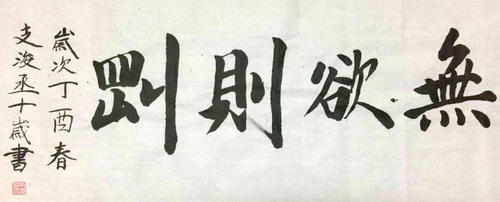 無欲則剛
歲次丁酉春
支浚丞十歲書